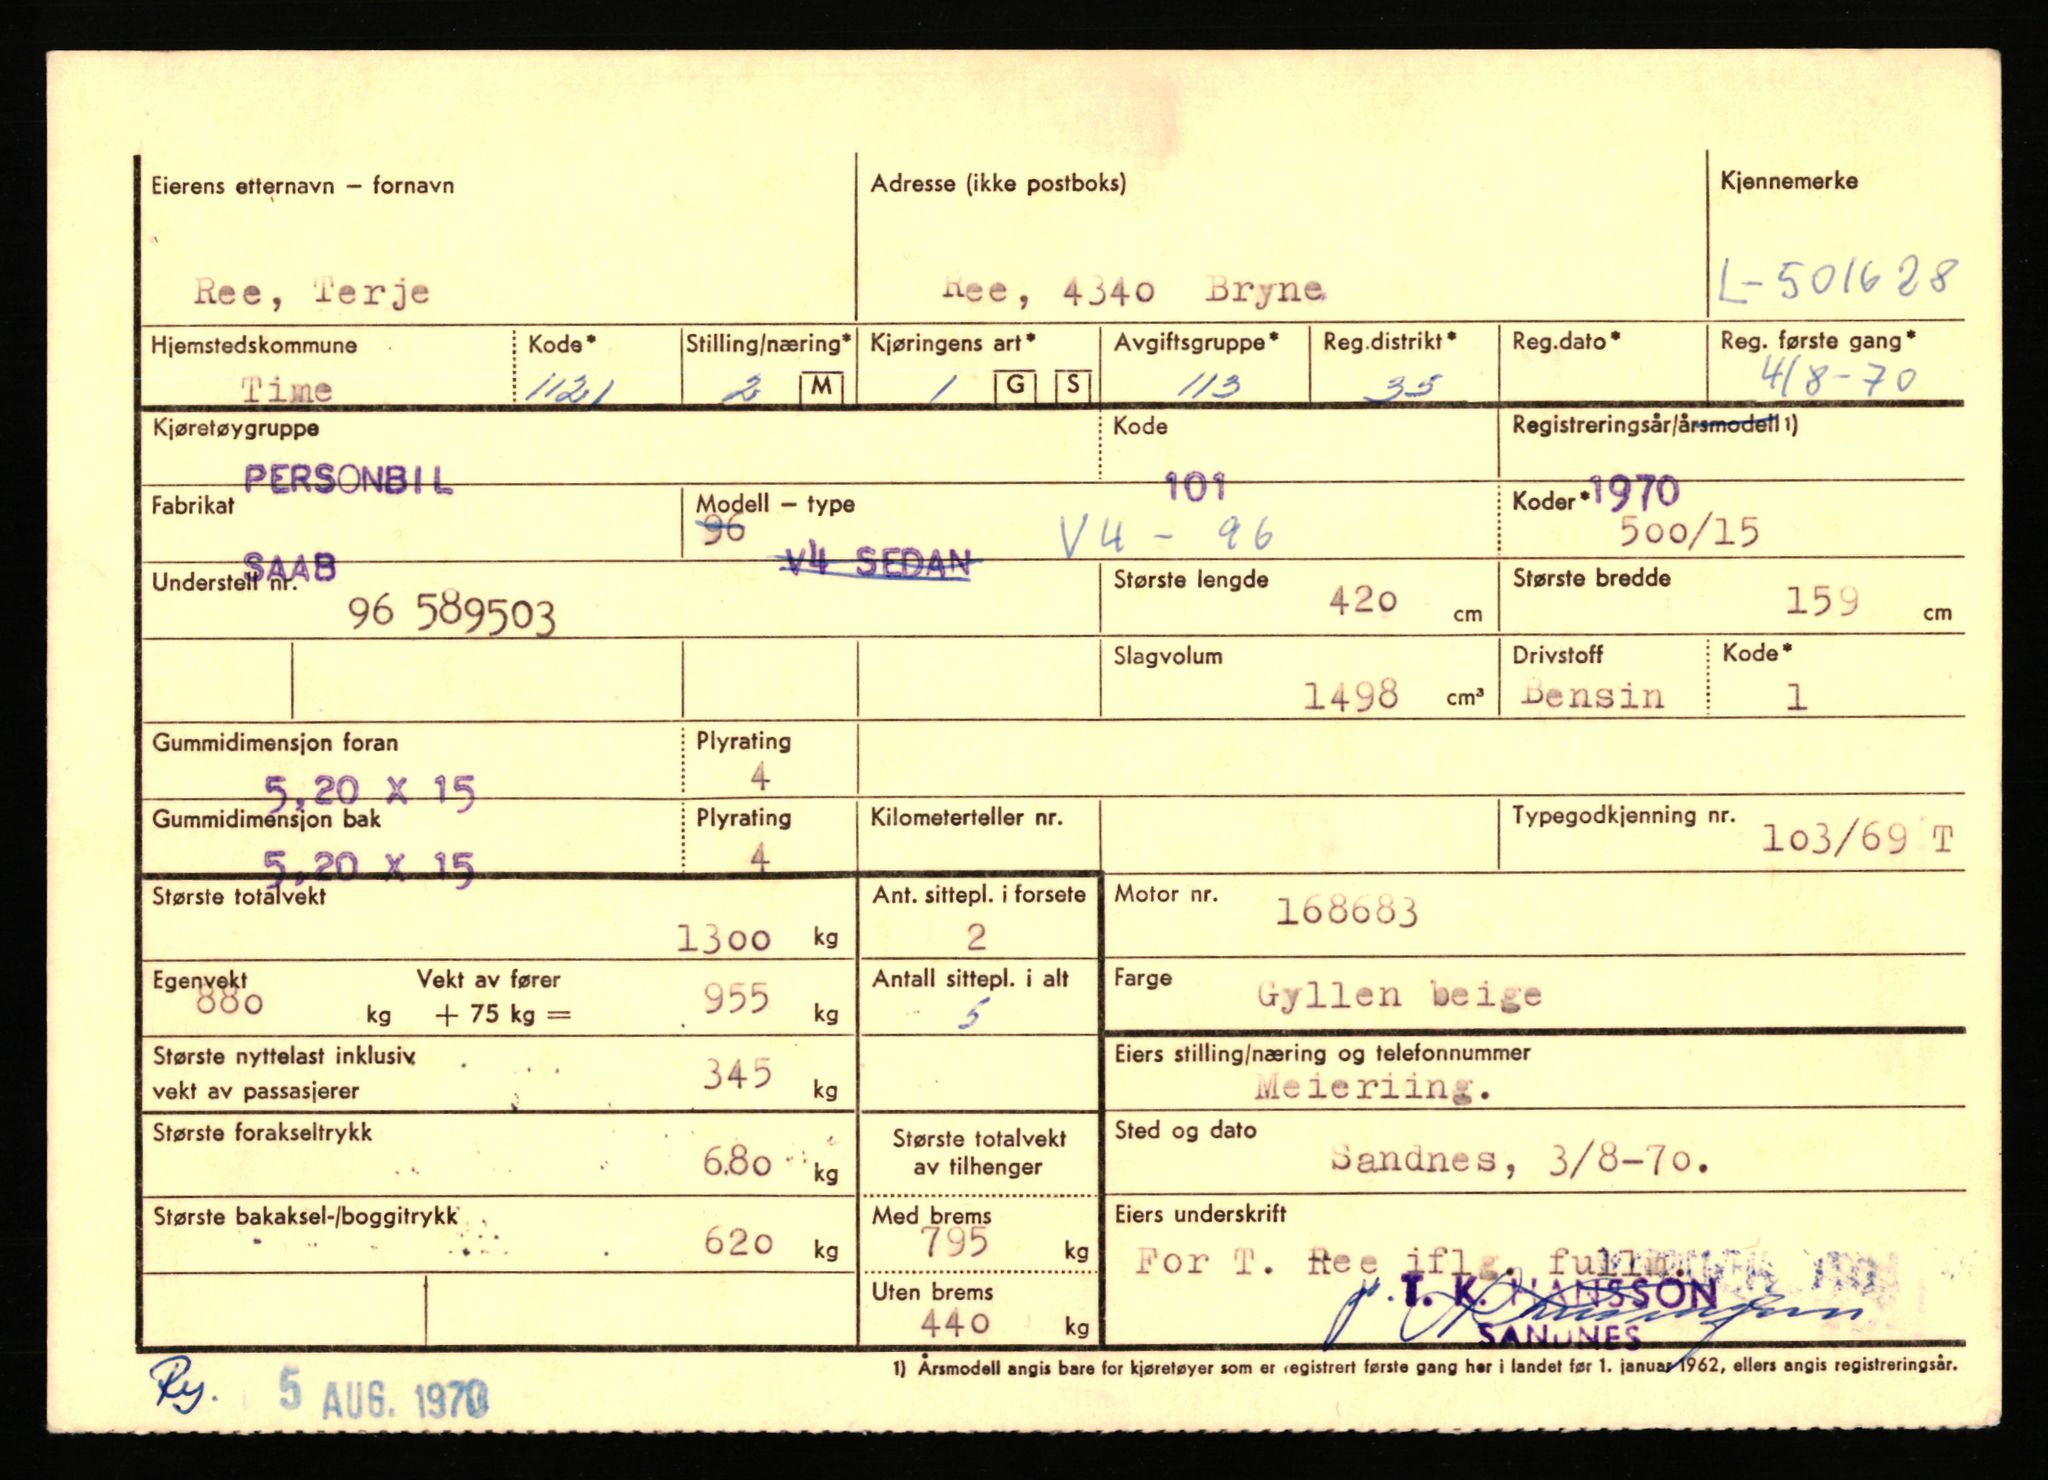 Eierens etternavn – fornavn
Adresse (ikke postboks)
Kjennemerke
Ree, Terje
Ree, 4340 Bryne
L-501628
Hjemstedskommune
Kode*
Stilling/næring*
Kjøringens art*
Avgiftsgruppe*
Reg.distrikt*
Reg.dato*
Reg. første gang*
Time
1121
2 M
1 G S
113
35
4/8-70
Kjøretøygruppe
Kode
Registreringsår/årsmodell 1)
PERSONBIL
101
1970
Fabrikat
Modell – type
Koder*
96
V4 - 96
500/15
SAAB
V4 SEDAN
Understell nr.
96 589503
Største lengde
420 cm
Største bredde
159 cm
Slagvolum
1498 cm³
Drivstoff
Bensin
Kode*
1
Gummidimensjon foran
5,20 X 15
Plyrating
4
Gummidimensjon bak
5,20 X 15
Plyrating
4
Kilometerteller nr.
Typegodkjenning nr.
103/69 T
Største totalvekt
1300 kg
Ant. sittepl. i forsete
2
Motor nr.
168683
Egenvekt
880 kg
Vekt av fører
+ 75 kg =
955 kg
Antall sittepl. i alt
5
Farge
Gyllen beige
Største nyttelast inklusiv
vekt av passasjerer
345 kg
Eiers stilling/næring og telefonnummer
Meieriing.
Største forakseltrykk
680 kg
Største totalvekt
av tilhenger
Sted og dato
Sandnes, 3/8-70.
Største bakaksel-/boggitrykk
620 kg
Med brems
795 kg
Uten brems
440 kg
Eiers underskrift
For T. Ree iflg. fullm.
p. T. K. HANSSON
SANDNES
1) Årsmodell angis bare for kjøretøyer som er registrert første gang her i landet før 1. januar 1962, ellers angis registreringsår.
5 AUG. 1970